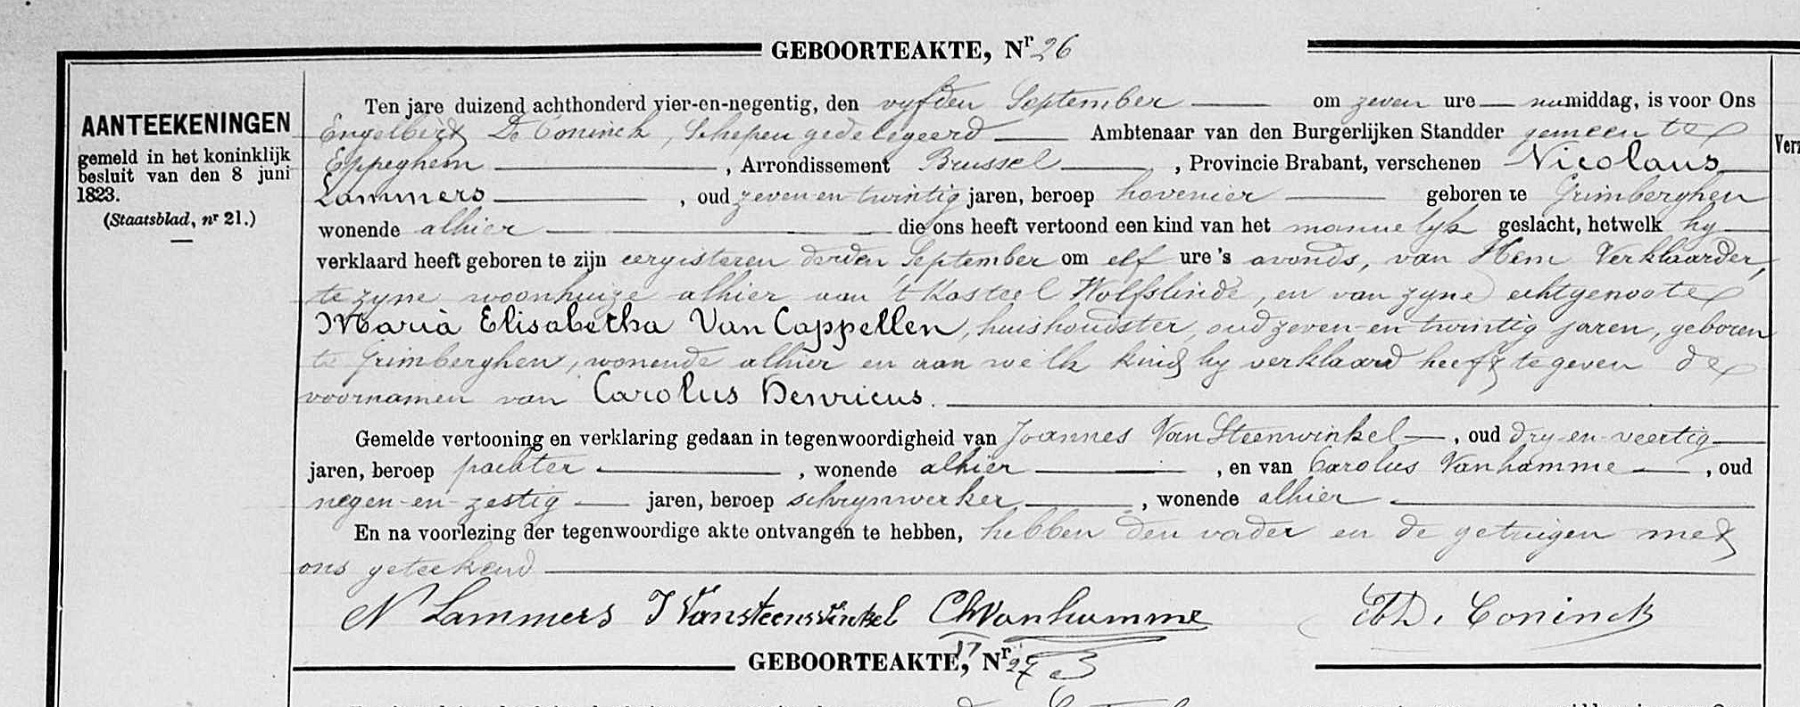 GEBOORTEAKTE, Nr 26
AANTEEKENINGEN
gemeld in het koninklijk
besluit van den 8 juni
1823.
(Staatsblad, nr 21.)
Ten jare duizend achthonderd vier-en-negentig, den vyfden September om zeven ure namiddag, is voor Ons
Engelbert De Coninck, Schepen gedelegeerd Ambtenaar van den Burgerlijken Standder gemeente
Eppeghem, Arrondissement Brussel, Provincie Brabant, verschenen Nicolaus
Lammers, oud zeven-en-twintig jaren, beroep hovenier geboren te Grimberghen
wonende alhier die ons heeft vertoond een kind van het mannelyk geslacht, hetwelk hy
verklaard heeft geboren te zijn eergisteren derden September om elf ure 's avonds, van Hem Verklaarder,
te zyne woonhuize alhier aan 't Kasteel Wolfslinde, en van zyne echtgenoote
Maria Elisabetha Van Cappellen, huishoudster, oud zeven-en-twintig jaren, geboren
te Grimberghen, wonende alhier en aan welk kind hy verklaard heeft te geven de
voornamen van Carolus Henricus.
Gemelde vertooning en verklaring gedaan in tegenwoordigheid van Joannes Van Steenwinkel, oud dry-en-veertig
jaren, beroep pachter, wonende alhier, en van Carolus Vanhamme, oud
negen-en-zestig jaren, beroep schrynwerker, wonende alhier
En na voorlezing der tegenwoordige akte ontvangen te hebben, hebben den vader en de getuigen met
ons geteekend
N Lammers J Vansteenwinkel Ch Vanhamme Eb De Coninck
GEBOORTEAKTE, Nr 27
Verz